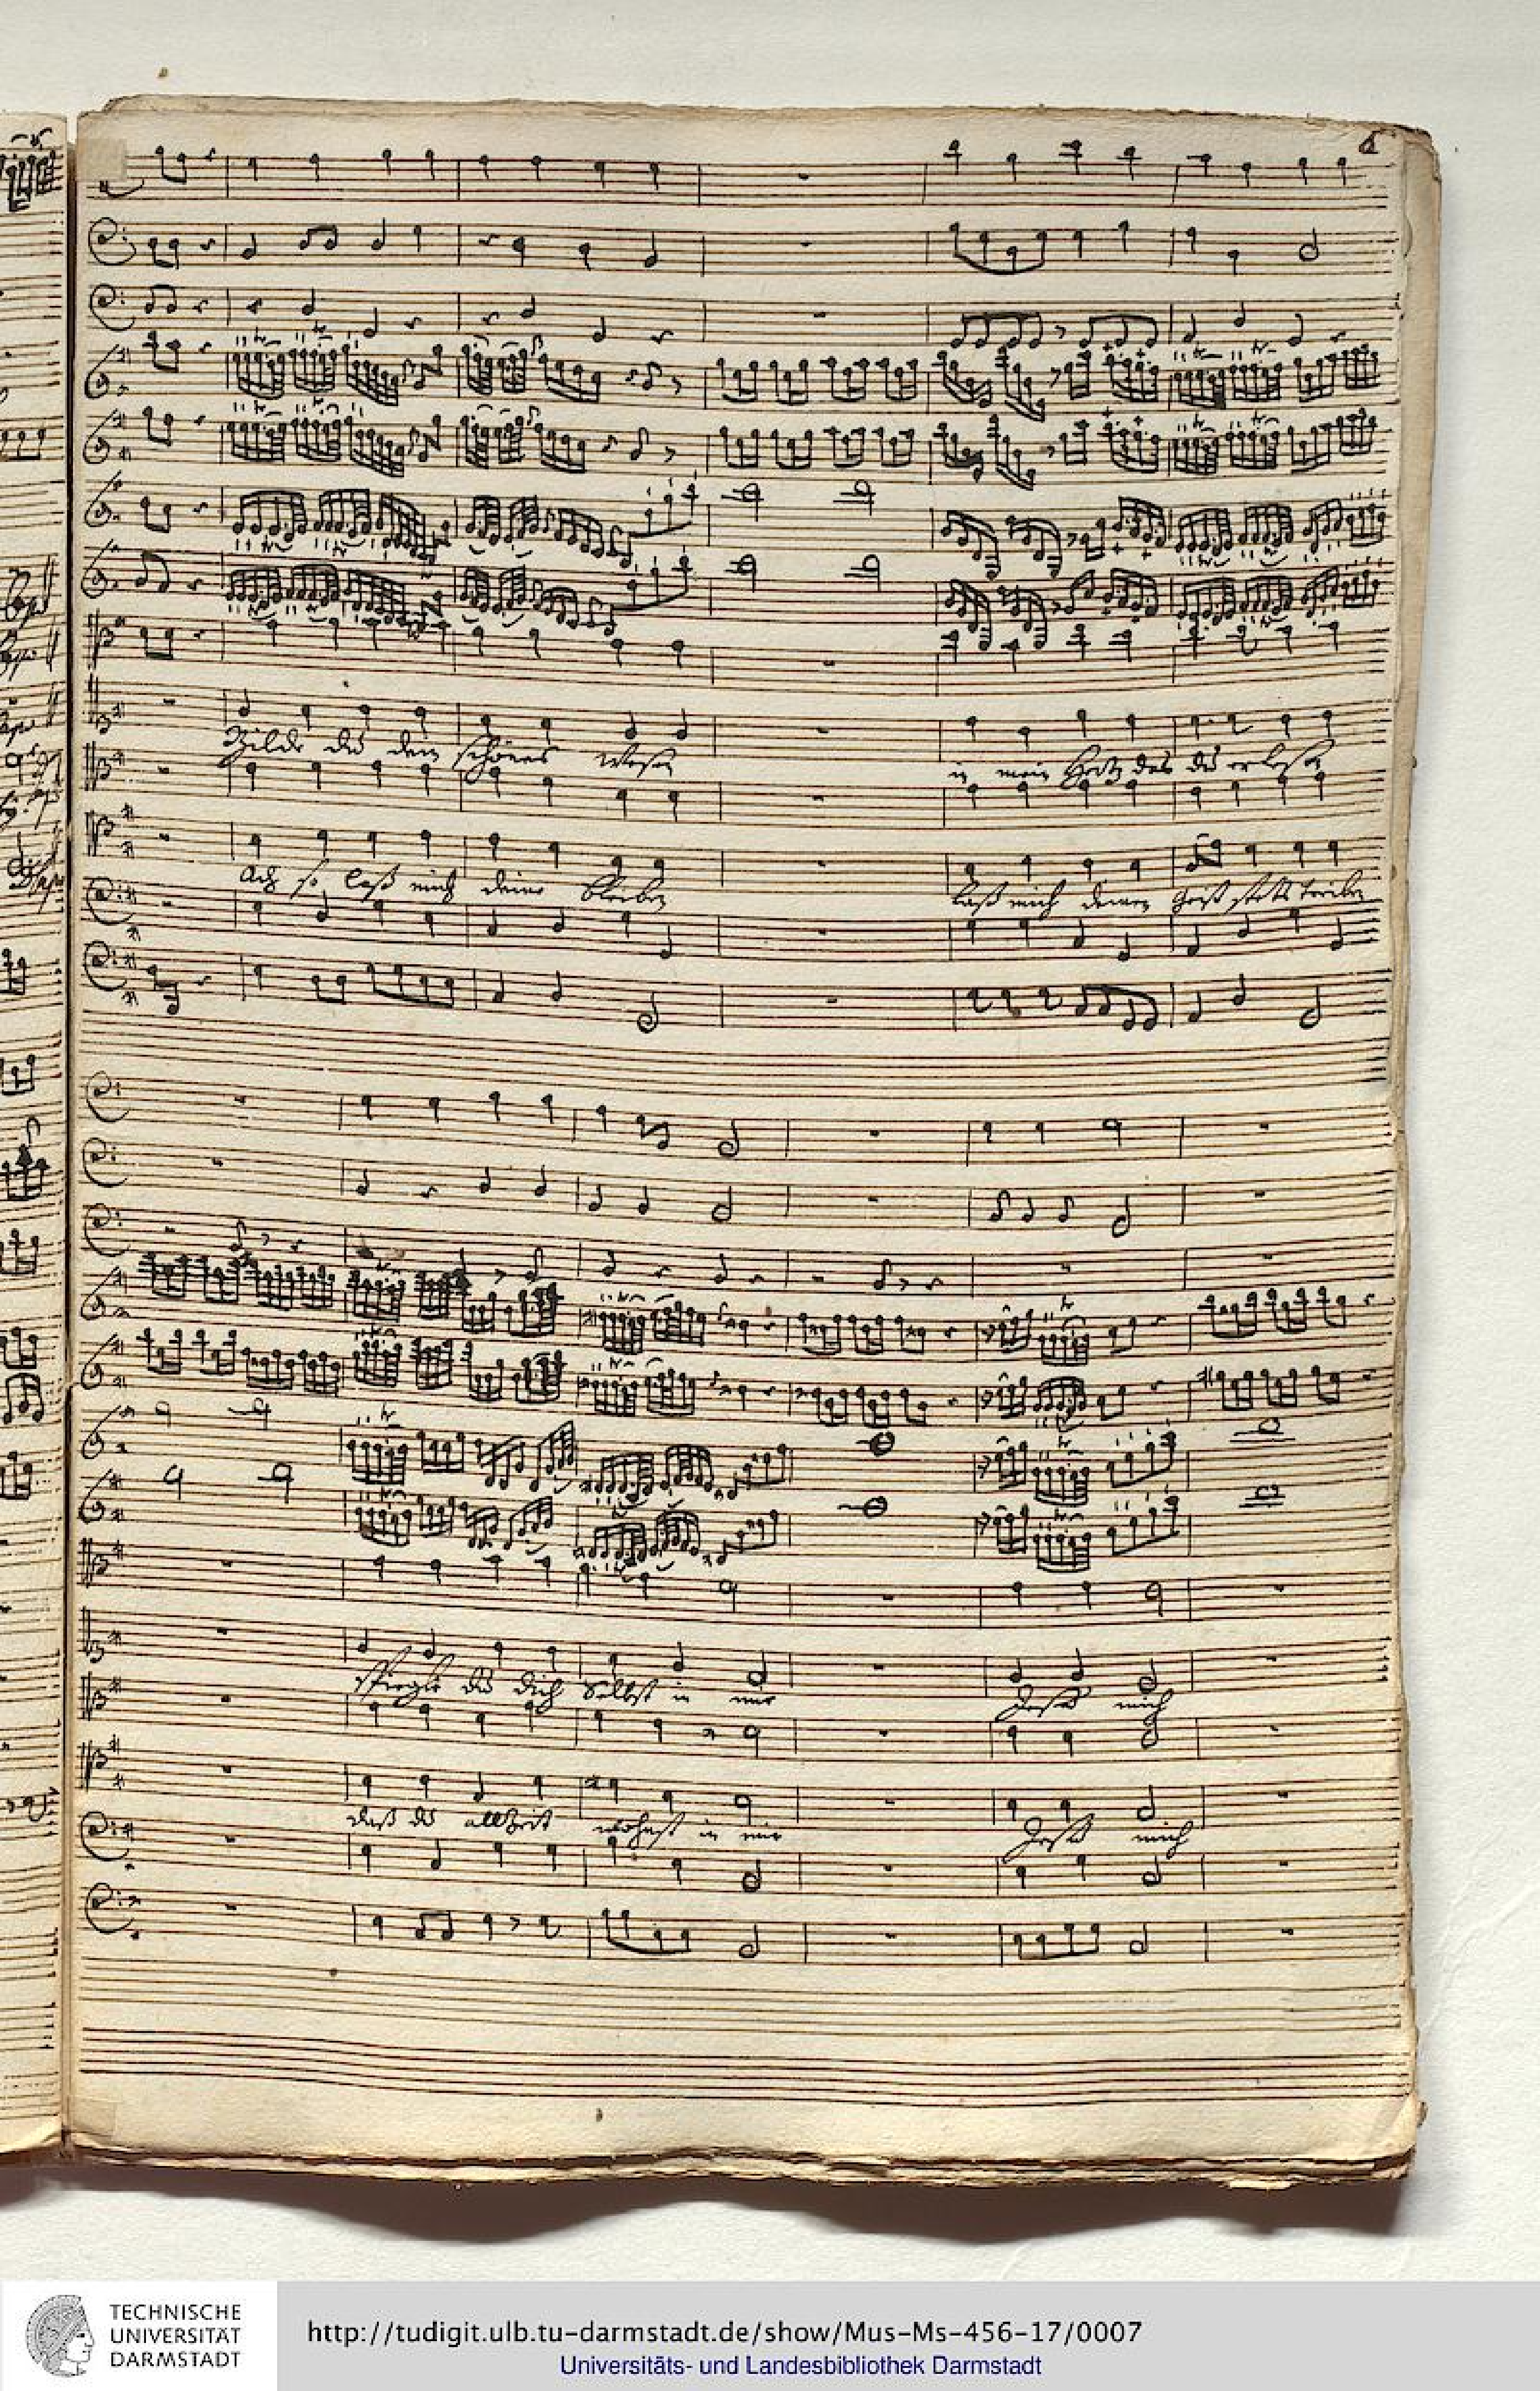 Bilde du dein schönes Wesen in mein Hertz das du erlesen
Ach so laß mich deine bleiben laß mich deinen Geist stetts treiben
Spiegle du dich selbst in mir
daß du allzeit wohnst in mir
TECHNISCHE
UNIVERSITÄT
DARMSTADT
http://tudigit.ulb.tu-darmstadt.de/show/Mus-Ms-456-17/0007
Universitäts- und Landesbibliothek Darmstadt